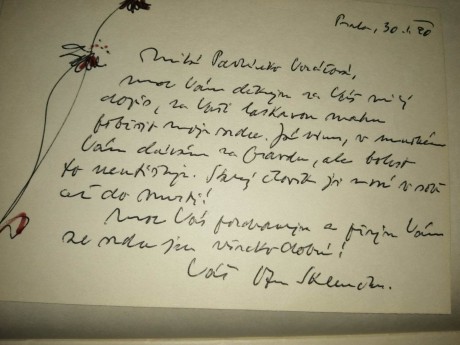 Praha, 30. 1. 80
Milá Pavlínko Vováčová,
moc Vám děkuji za Váš milý
dopis, za Vaši laskavou snahu
potěšit moje srdce. Já vím, v mnohém
Vám dávám za pravdu, ale bolest
to neutišuje. Starý člověk ji nosí v sobě
až do smrti!
Moc Vás pozdravuji a přeji Vám
ze srdce jen všecko dobré!
Váš